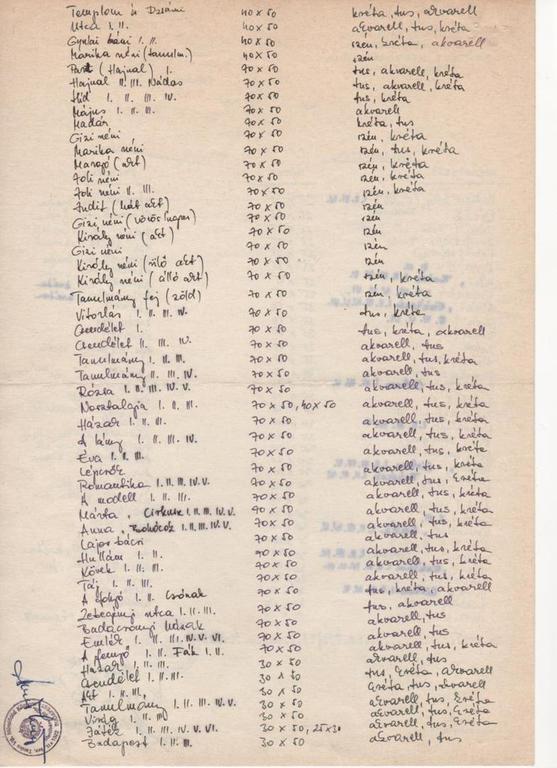 Templom u Dzsámi 40 x 50 kréta, tus, akvarell
Utca I. II. 40 x 50 akvarell, tus, kréta
Gyulai néni I. II. 40 x 50 szén, kréta, akvarell
Marika néni (tanulm.) 40 x 50 szén
Part (Hajnal) I. 70 x 50 tus, akvarell, kréta
Hajnal II. III. Nádas 70 x 50 tus, akvarell, kréta
Híd I. II. III. IV. 70 x 50 tus, kréta
Május I. II. III. 70 x 50 akvarell
Madár 70 x 50 kréta, tus
Gizi néni 70 x 50 szén, kréta
Marika néni 70 x 50 szén, tus, kréta
(akt) 70 x 50 szén, kréta
Joli néni 70 x 50 szén, kréta
Joli néni II. III. 70 x 50 szén, kréta
Judit (hát akt) 70 x 50 szén
Gizi néni (vörös hajas) 70 x 50 szén
Király néni (akt) 70 x 50 szén
Gizi néni 70 x 50 szén
Király néni (ülő akt) 70 x 50 szén
Király néni (álló akt) 70 x 50 szén, kréta
Tanulmány fej (zöld) 70 x 50 szén, kréta
Vitorlás I. II. III. IV. 70 x 50 tus, kréta
Csendélet I. 70 x 50 tus, kréta, akvarell
Csendélet II. III. IV. 70 x 50 akvarell, tus
Tanulmány I. II. III. 70 x 50 akvarell, tus, kréta
Tanulmány II. III. IV. 70 x 50 akvarell, tus
Rózsa I. II. III. IV. V. 70 x 50 akvarell, tus, kréta
Nosztalgia I. II. III. 70 x 50, 40 x 50 akvarell, tus, kréta
Házak I. II. III. 70 x 50 akvarell, tus, kréta
A lány I. II. III. IV. 70 x 50 akvarell, tus, kréta
Éva I. II. III. 70 x 50 akvarell, tus, kréta
Lépcsők 70 x 50 akvarell, tus, kréta
Romantika I. II. III. IV. V. 70 x 50 akvarell, tus, kréta
A modell I. II. III. 70 x 50 akvarell, tus, kréta
Márta, Cirkusz I. II. III. IV. V. 70 x 50 akvarell, tus, kréta
Anna, Bohócok I. II. III. IV. V. 70 x 50 akvarell, tus
Lajos bácsi 70 x 50
Hullám I. II. 70 x 50 akvarell, tus, kréta
Kövek I. II. III. 70 x 50 akvarell, tus, kréta
Táj I. II. III. 70 x 50 akvarell, tus, kréta
I. II. Csónak 70 x 50 tus, kréta, akvarell
Zebegényi utca I. II. III. 70 x 50 tus, akvarell
Badacsonyi 70 x 50 akvarell, tus
Emlék I. II. III. IV. V. VI. 70 x 50 akvarell, tus
I. II. Fák I. II. 70 x 50 akvarell, tus, kréta
Határ I. II. III. 30 x 50 akvarell, tus
Csendélet I. II. III. 30 x 50 tus, kréta, akvarell
Akt I. II. III. 30 x 50 kréta, tus, akvarell
Tanulmány I. II. III. IV. V. 30 x 50 akvarell, tus, kréta
Virág I. II. III. 30 x 50 akvarell, tus, kréta
Játék I. II. III. IV. V. VI. 30 x 50, 25 x 30 akvarell, tus, kréta
Budapest I. II. III. 30 x 50 akvarell, tus